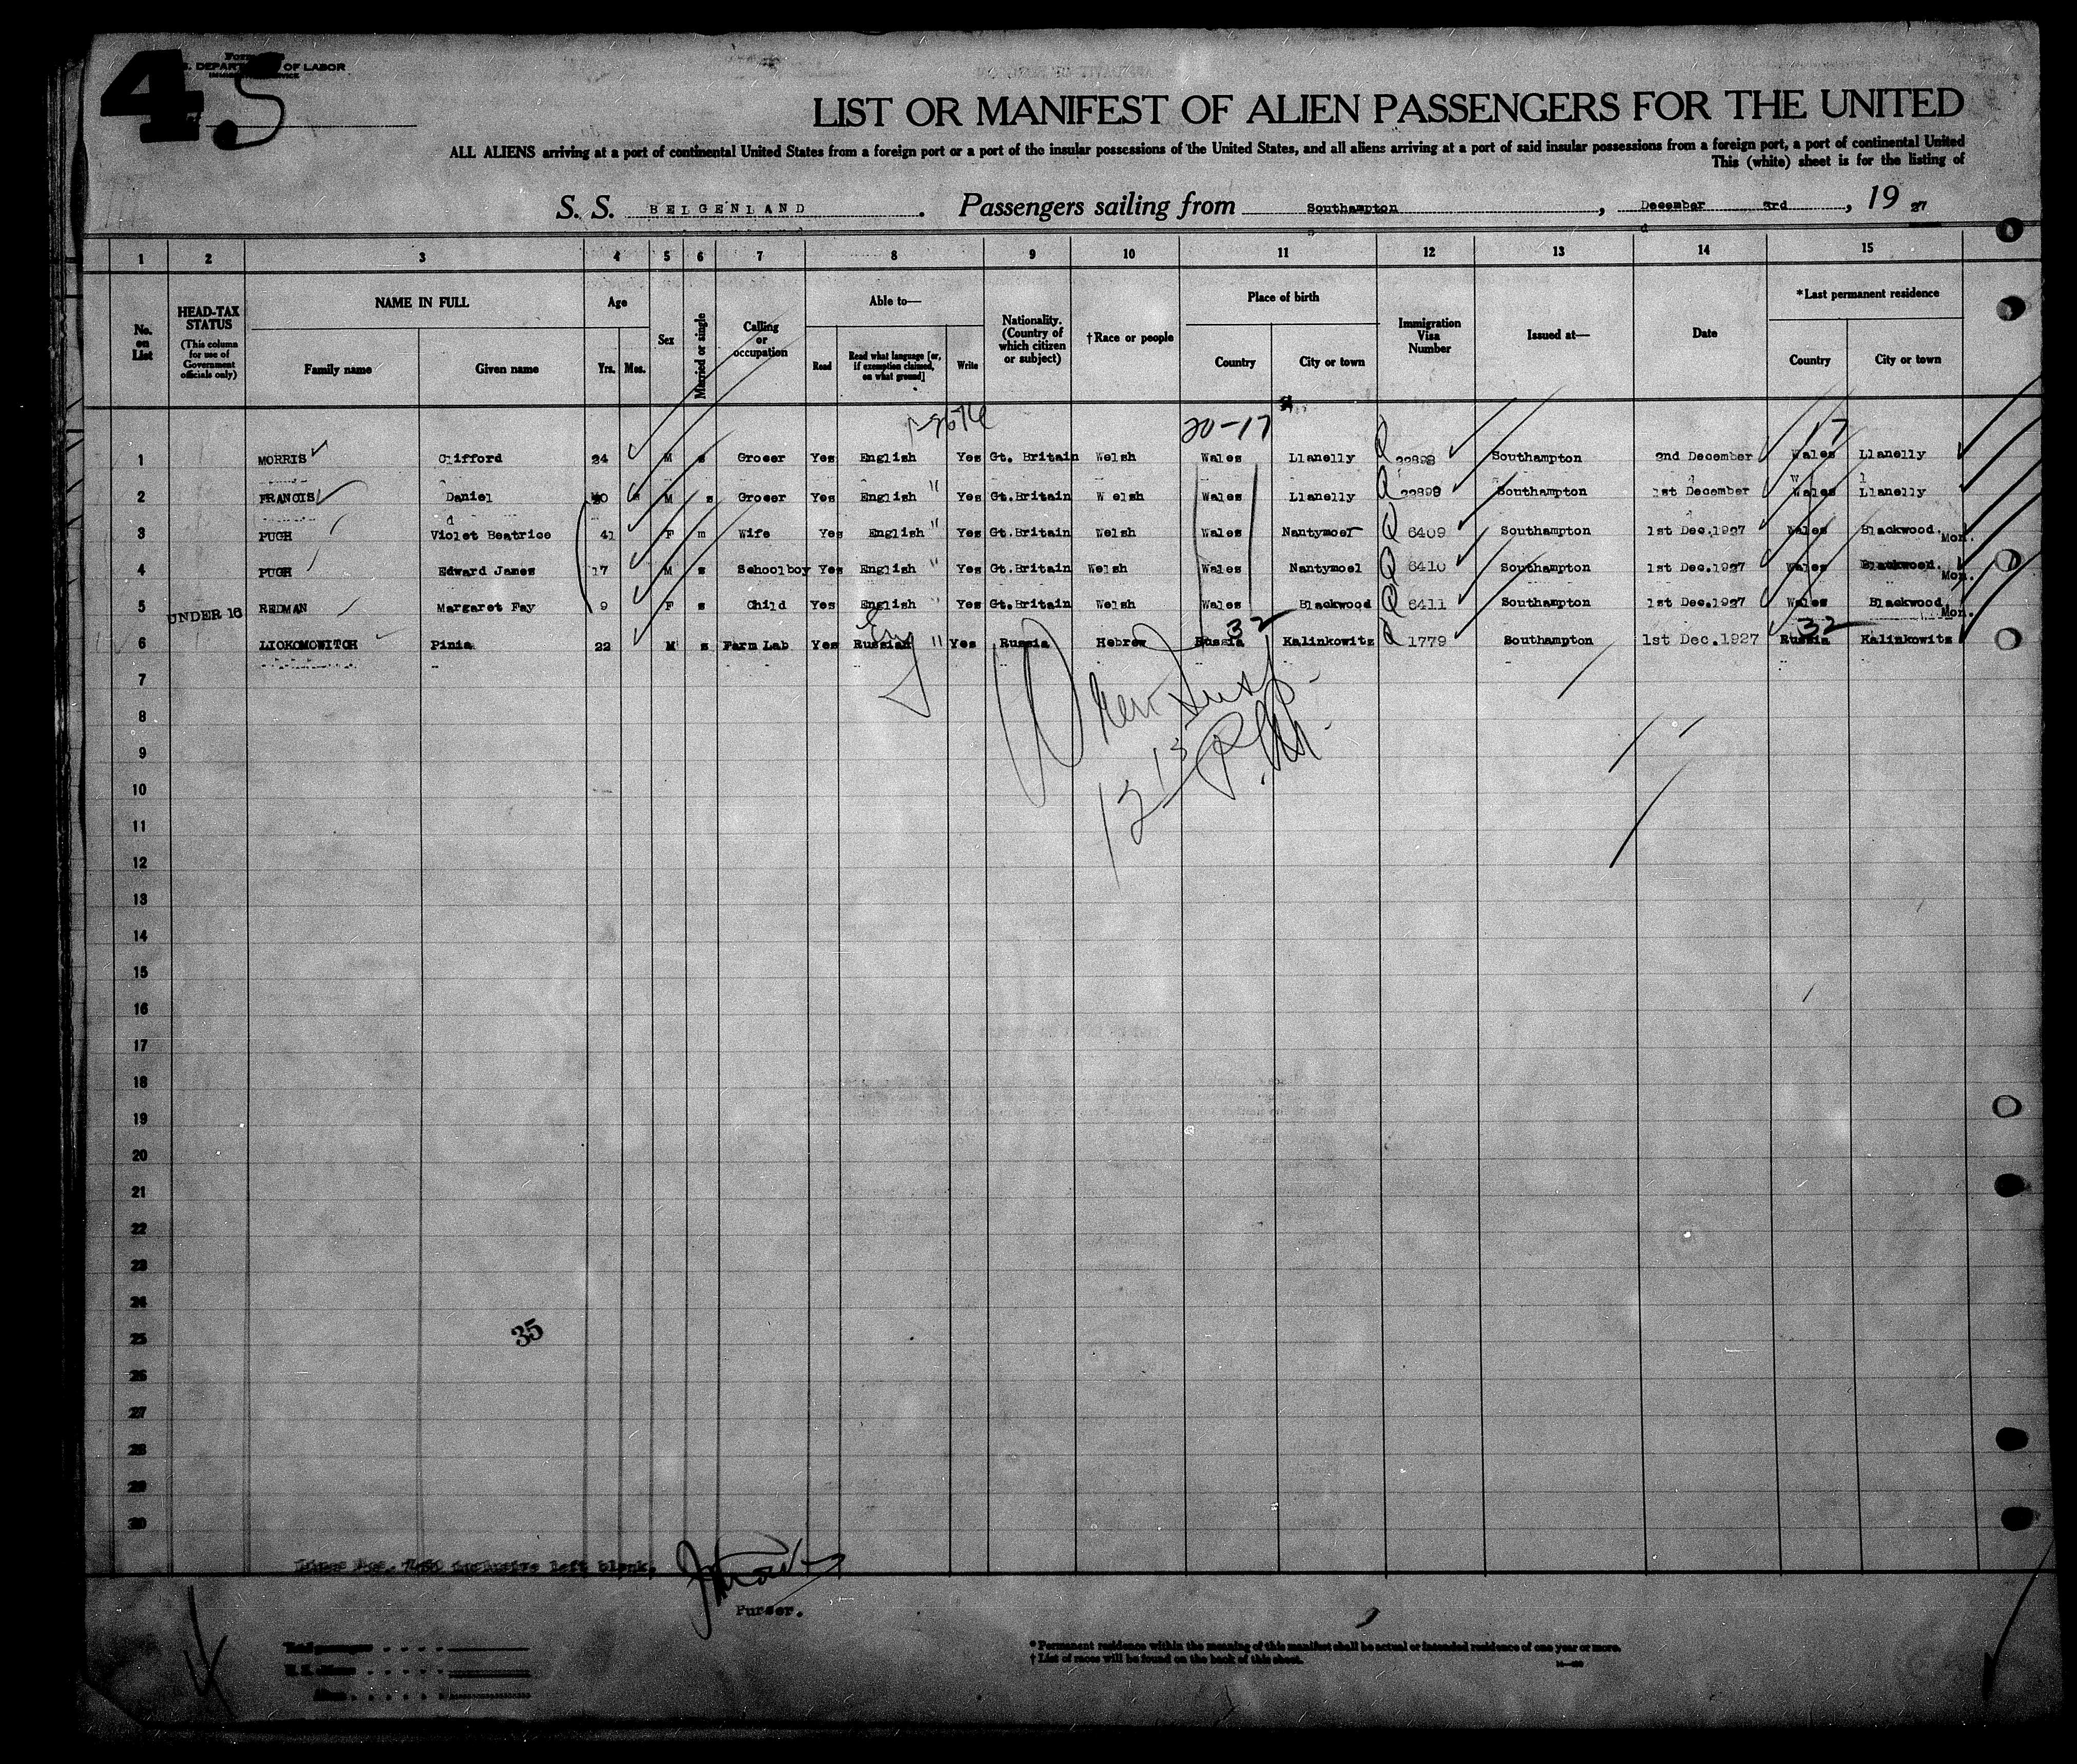 4 5
OF LABOR
LIST OR MANIFEST OF ALIEN PASSENGERS FOR THE UNITED
ALL ALIENS arriving at a port of continental United States from a foreign port or a port of the insular possessions of the United States, and all aliens arriving at a port of said insular possessions from a foreign port, a port of continental United
This (white) sheet is for the listing of
S. S. BELGENLAND. Passengers sailing from Southampton, December 3rd, 19 27
1 2 3 4 5 6 7 8 9 10 11 12 13 14 15
No. on List
HEAD-TAX STATUS (This column for use of Government officials only)
NAME IN FULL
Family name Given name
Age
Yrs. Mos.
Sex
Married or single
Calling or occupation
Able to—
Read Read what language [or, if exemption claimed, on what ground] Write
Nationality. (Country of which citizen or subject)
†Race or people
Place of birth
Country City or town
Immigration Visa Number
Issued at—
Date
*Last permanent residence
Country City or town
20-17 17
1 MORRIS Clifford 24 M s Grocer Yes English Yes Gt. Britain Welsh Wales Llanelly Southampton 2nd December Wales Llanelly
2 FRANCIS Daniel M s Grocer Yes English " Yes Gt.Britain W elsh Wales Llanelly Southampton 1st December Wales Llanelly
3 PUGH Violet Beatrice 41 F m Wife Yes English " Yes Gt.Britain Welsh Wales Nantymoel Q 6409 Southampton 1st Dec.1927 Wales Blackwood. Mon.
4 PUGH Edward James 17 M s Schoolboy Yes English " Yes Gt.Britain Welsh Wales Nantymoel Q 6410 Southampton 1st Dec.1927 Wales Blackwood. Mon.
5 UNDER 16 REDMAN Margaret Fay 9 F s Child Yes English " Yes Gt.Britain Welsh Wales Blackwood Q 6411 Southampton 1st Dec.1927 Wales Blackwood Mon.
32 32
6 LIOKOMOWITCH Pinia 22 M s Farm Lab Yes Russian " Yes Russia Hebrew Russia Kalinkowitz Q 1779 Southampton 1st Dec.1927 Russia Kalinkowitz
7
8
9
10
11
12
13
14
15
16
17
18
19
20
21
22
23
24
25
26
27
28
29
30
35
inclusive left blank.
Purser.
* Permanent residence within the meaning of this manifest shall be actual or intended residence of one year or more.
† List of races will be found on the back of this sheet.